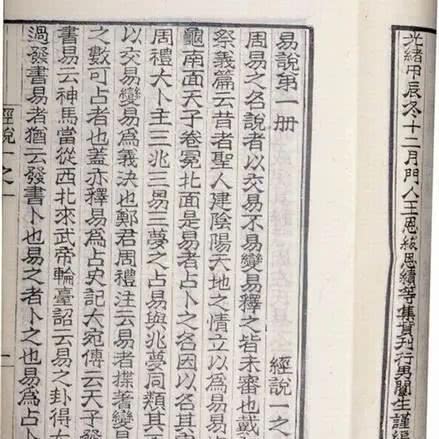 光緒甲辰冬十二月門人王恩紱恩績等集貲刊行男闓生謹編
易說第一冊 經說一之
周易之名說者以交易不易變易釋之皆未審也戴
祭義篇云昔者聖人建陰陽天地之情立以爲易易
龜南面天子卷冕北面是易者占卜之名因以名其
周禮大卜主三兆三易三夢之占易與兆夢同類其
以交易變易爲義決也鄭君周禮注云易者揲蓍變易
之數可占者也蓋亦釋易爲占史記大宛傳云天子發
書易云神馬當從西北來武帝輪臺詔云易之卦得大
過發書易者猶云發書卜也易之者卜之也易爲占卜
經說一之一 一